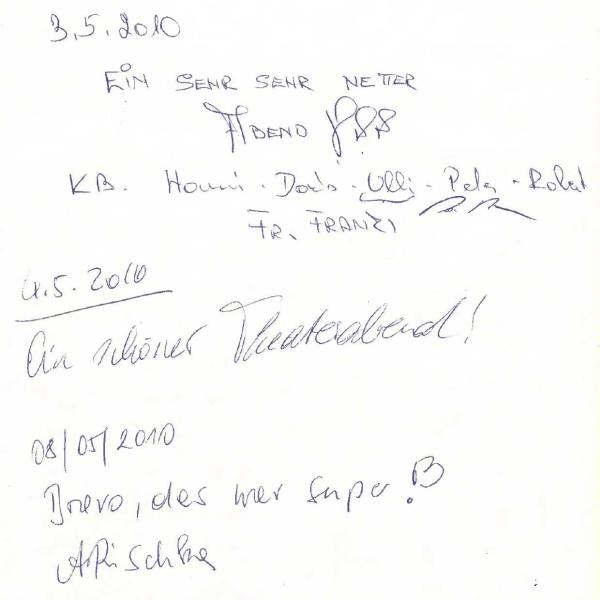 3.5.2010
EIN SEHR SEHR NETTER
ABEND
KB. Hanni · Doris · Ulli · Peter · Robert
FR. FRANZI
4.5.2010
Ein schöner Theaterabend!
08/05/2010
Bravo, das war super!